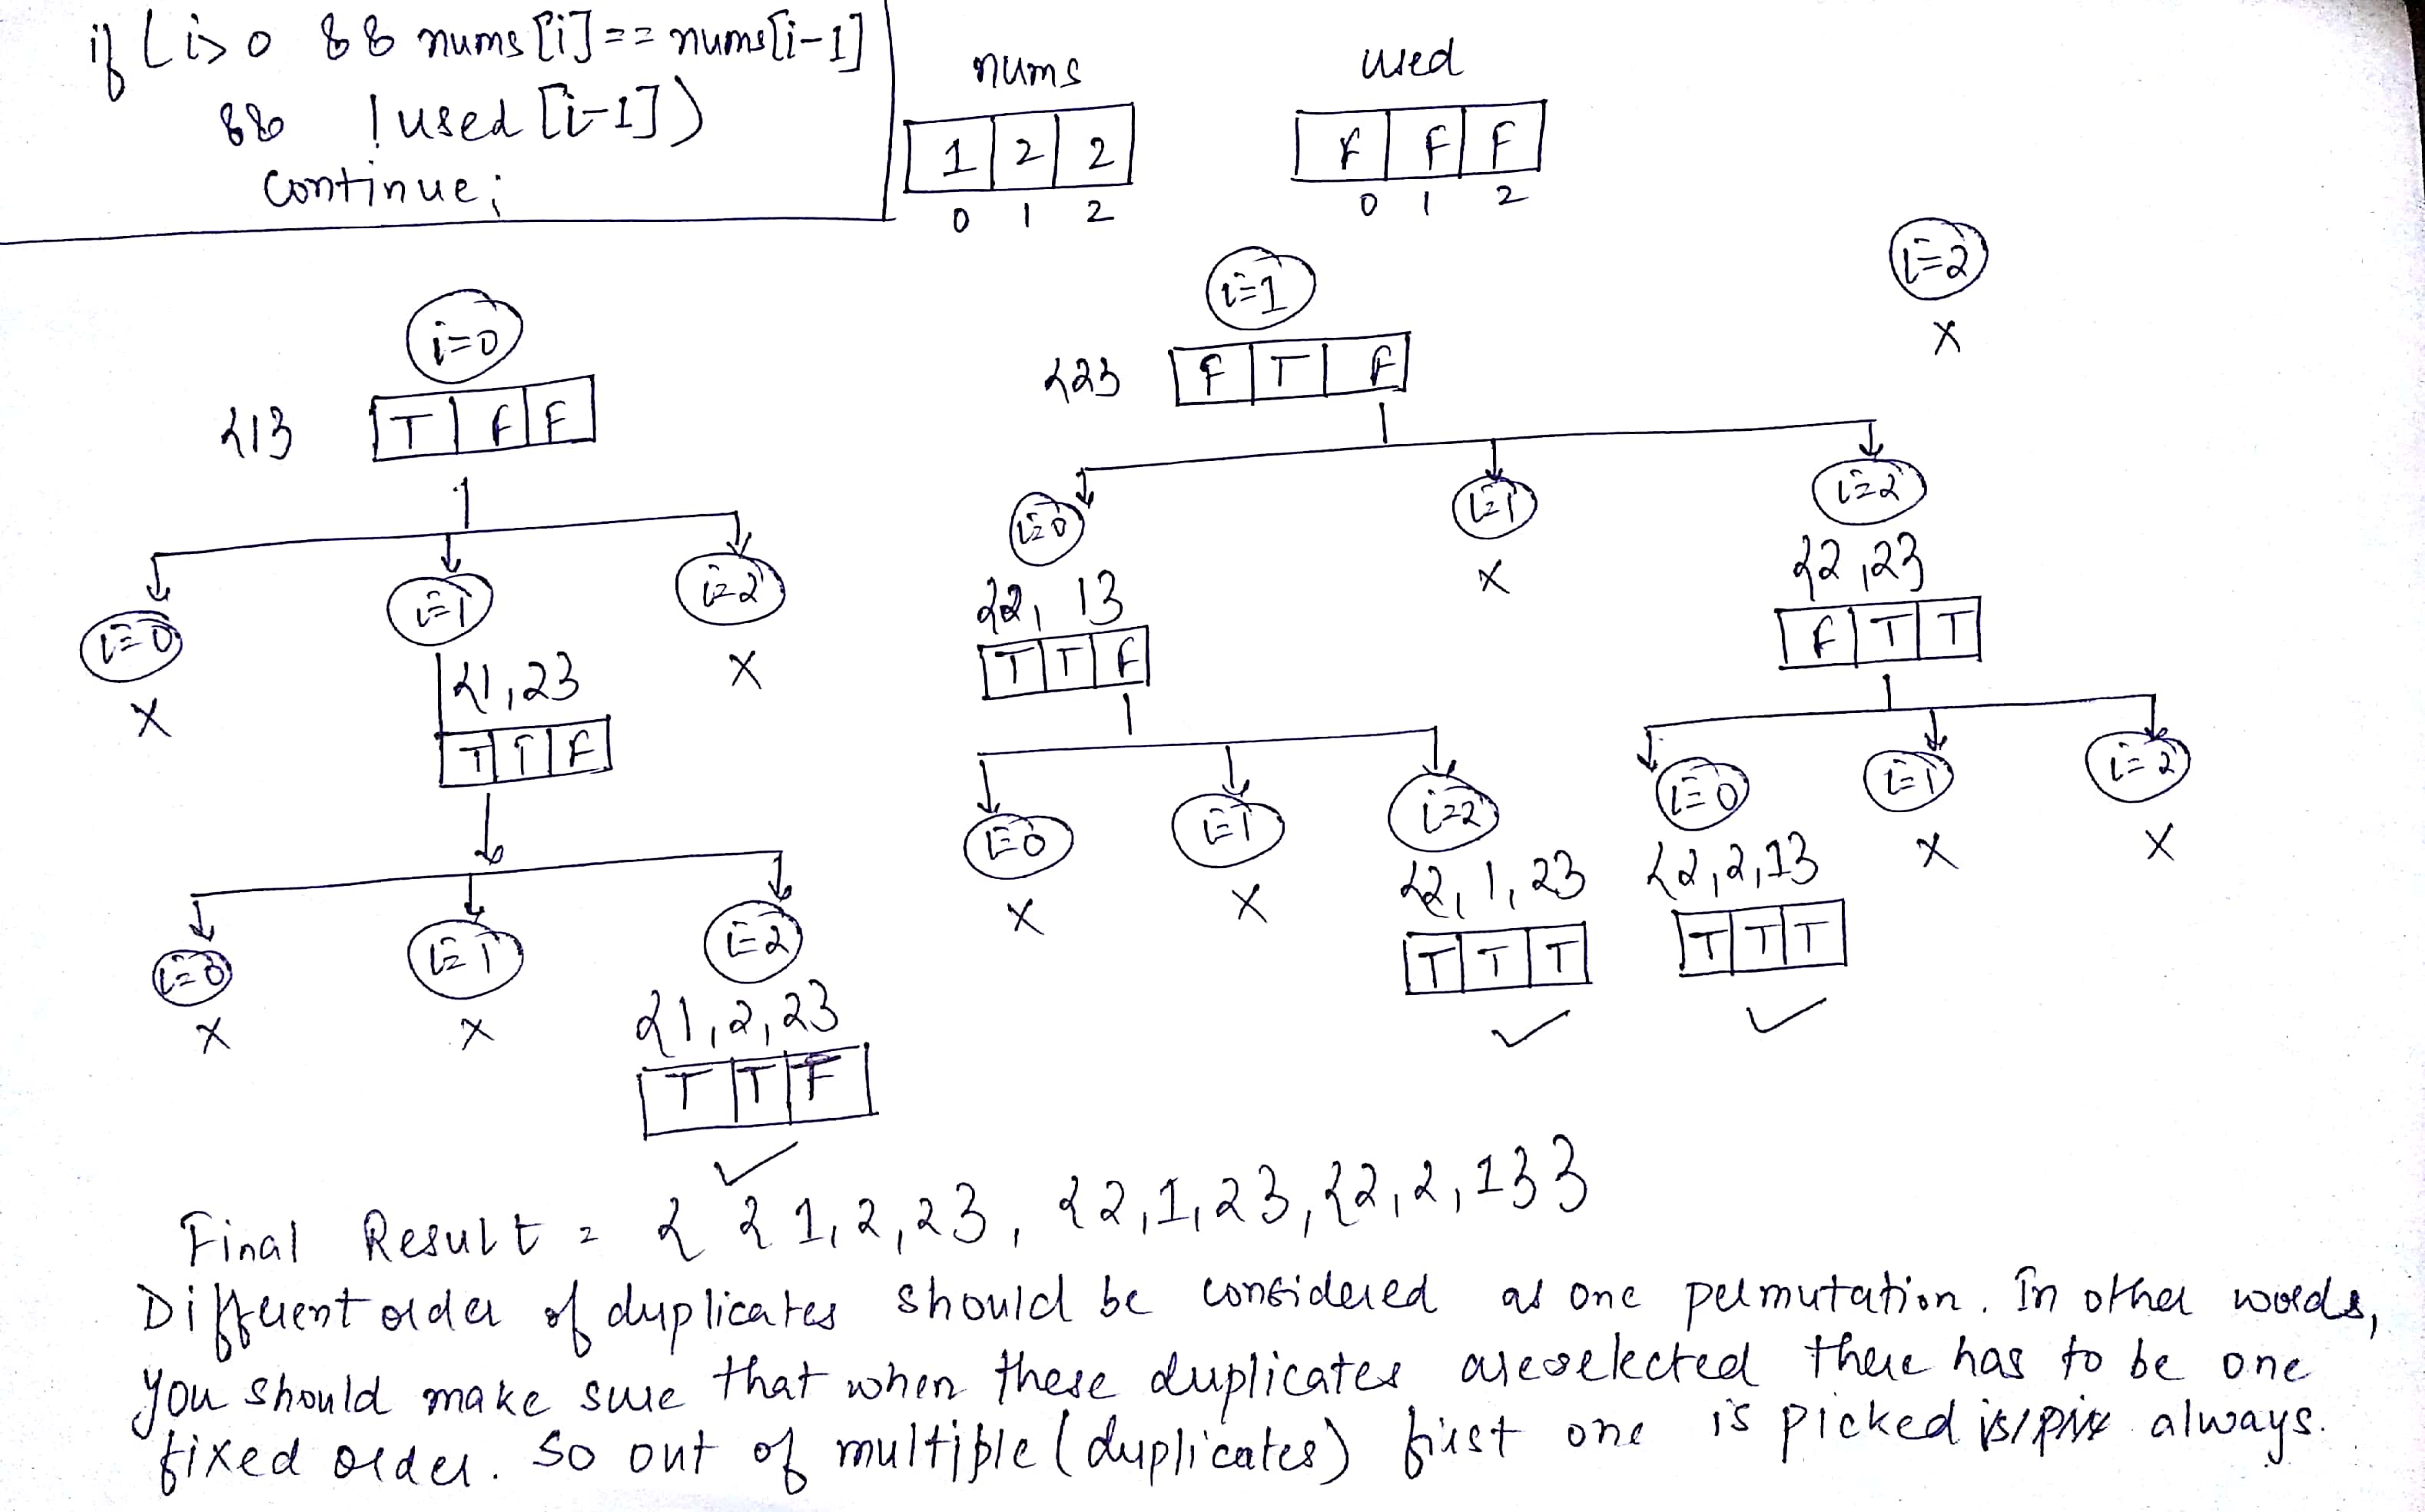 if (i>0 && nums[i]==nums[i-1]
&& !used[i-1])
continue;
nums
1 2 2
0 1 2
used
F F F
0 1 2
i=0
{1} T F F
i=0 i=1 i=2
X {1,2} X
T T F
i=0 i=1 i=2
X X {1,2,2}
T T F
i=1
{2} F T F
i=0 i=1 i=2
{2,1} X {2,2}
T T F F T T
i=0 i=1 i=2
X X {2,1,2}
T T T
i=0 i=1 i=2
{2,2,1} X X
T T T
i=2
X
Final Result = { {1,2,2}, {2,1,2}, {2,2,1}}
Different order of duplicates should be considered as one permutation. In other words,
you should make sure that when these duplicates are selected there has to be one
fixed order. So out of multiple (duplicates) first one is picked always.